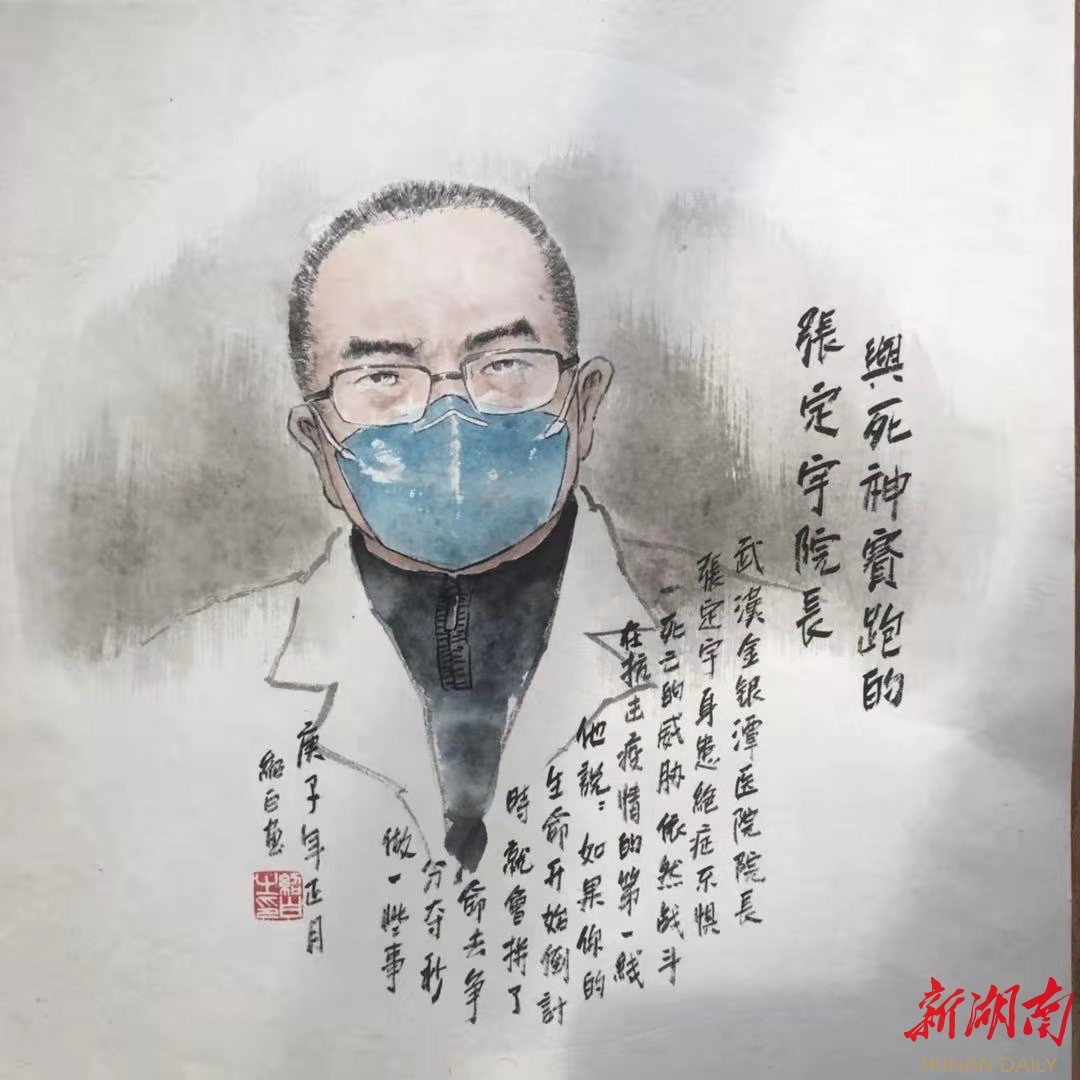 與死神賽跑的
張定宇院長
武漢金银潭医院院長
張定宇身患绝症不惧
一死亡的威胁依然战斗
在抗击疫情的第一綫
他說：如果你的
生命开始倒計
時就會拼了
命去争
分夺秒
做一些事
庚子年正月
新湖南
HUNAN DAILY